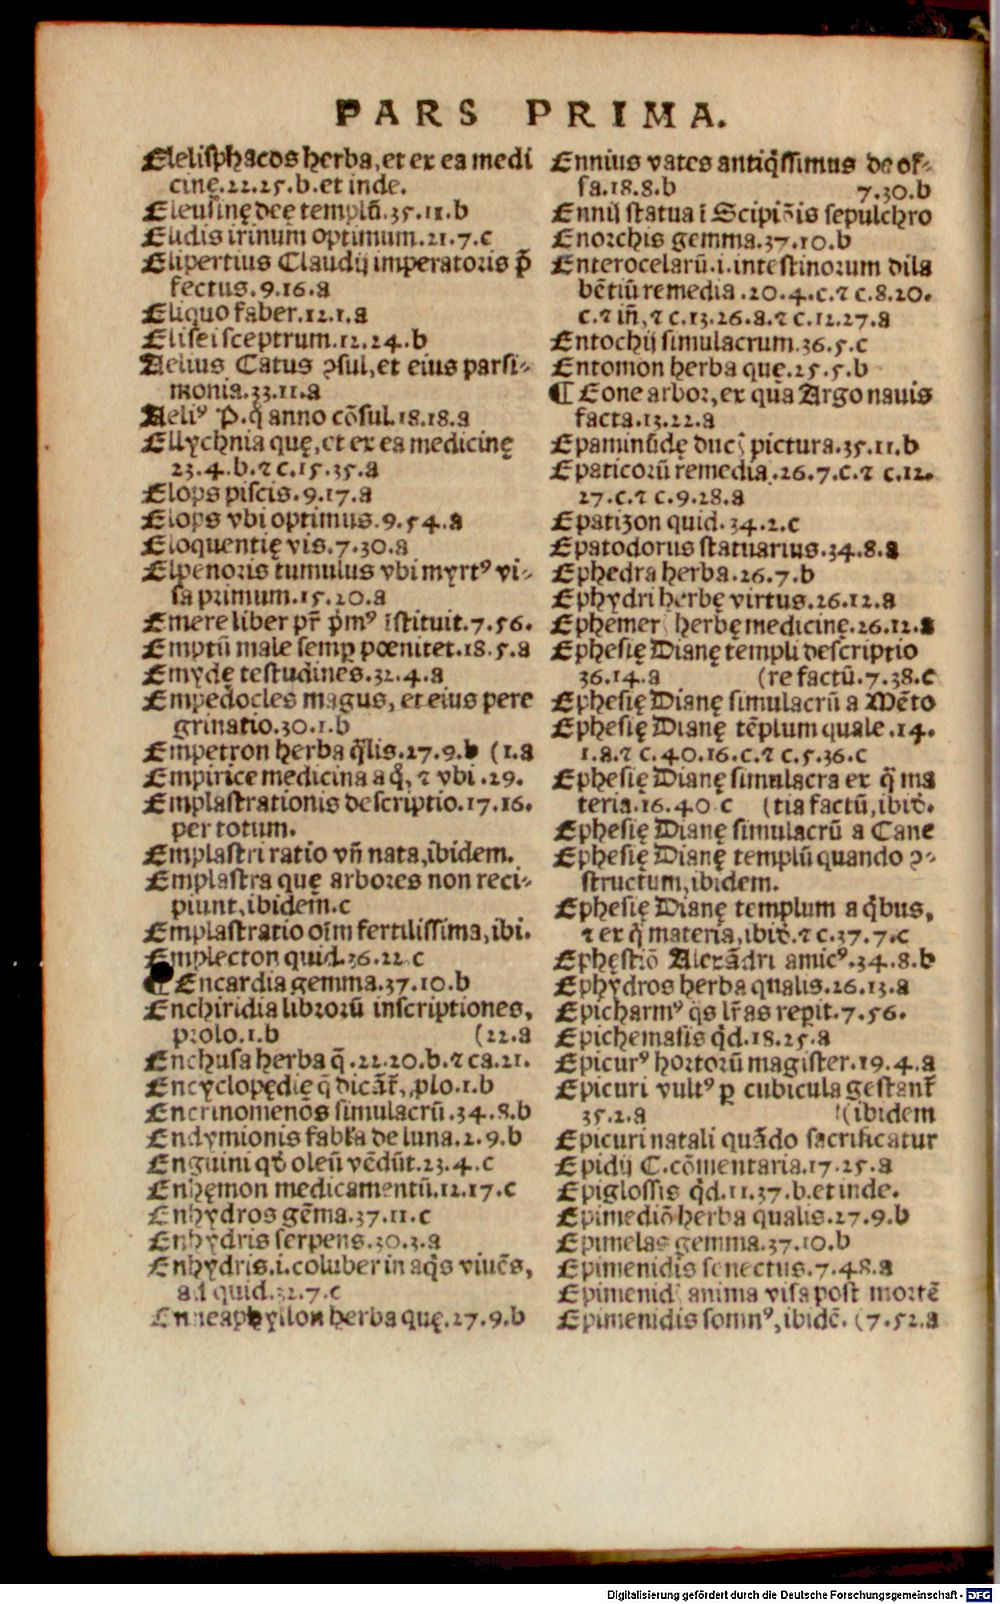 PARS PRIMA.
Elelisphacos herba, et ex ea medi
cinę.22.25.b.et inde.
Eleusinę deę templū.35.11.b
Elidis irinum optimum.21.7.c
Elipertius Claudij imperatoris p̄
fectus.9.16.a
Eliquo faber.12.1.a
Elisei sceptrum.12.24.b
Aelius Catus ꝯsul, et eius parsi-
monia.33.11.a
Aeliꝰ P.q̄ anno cōsul.18.18.a
Ellychnia quę, et ex ea medicinę
23.4.b.⁊ c.15.35.a
Elops piscis.9.17.a
Elops vbi optimus.9.54.a
Eloquentię vis.7.30.a
Elpenoris tumulus vbi myrtꝰ vi-
sa primum.15.20.a
Emere liber pr̄ pͥmꝰ īstituit.7.56.
Emptū male semꝑ pœnitet.18.5.a
Emydę testudines.32.4.a
Empedocles magus, et eius pere
grinatio.30.1.b
Empetron herba q̄lis.27.9.b (1.a
Empiricę medicina a qͦ, ⁊ vbi.29.
Emplastrationis descriptio.17.16.
per totum.
Emplastri ratio vn̄ nata, ibidem.
Emplastra quę arbores non reci-
piunt, ibidem.c
Emplastratio oīm fertilissima, ibi.
Emplecton quid.36.22.c
¶ Encardia gemma.37.10.b
Enchiridia librorū inscriptiones,
prolo.1.b (22.a
Enchusa herba q̄.22.20.b.⁊ ca.21.
Encyclopędię q̄ dicāt᷑, ꝓlo.1.b
Encrinomenos simulacrū.34.8.b
Endymionis fabl'a de luna.2.9.b
Enguini qđ oleū vēdūt.23.4.c
Enhęmon medicamentū.12.17.c
Enhydros gēma.37.11.c
Enhydris serpens.30.3.a
Enhydris.i.coluber in aqͥs viuēs,
ad quid.32.7.c
Enneaphyllon herba quę.27.9.b
Ennius vates antiqͥssimus de of-
fa.18.8.b 7.30.b
Ennij statua ī Scipiōis sepulchro
Enorchis gemma.37.10.b
Enterocelarū.i.intestinorum dila
bētiū remedia.20.4.c.⁊ c.8.20.
c.⁊ in̄, ⁊ c.13.26.a.⁊ c.12.27.a
Entochij simulacrum.36.5.c
Entomon herba quę.25.5.b
¶ Eone arbor, ex qua Argo nauis
facta.13.22.a
Epaminūdę ducꝭ pictura.35.11.b
Epaticorū remedia.26.7.c.⁊ c.12.
27.c.⁊ c.9.28.a
Epatizon quid.34.2.c
Epatodorus statuarius.34.8.a
Ephedra herba.26.7.b
Ephydri herbę virtus.26.12.a
Ephemerꝭ herbę medicinę.26.12.a
Ephesię Dianę templi descriptio
36.14.a (re factū.7.38.c
Ephesię Dianę simulacrū a Mēto
Ephesię Dianę tēplum quale.14.
1.a.⁊ c.40.16.c.⁊ c.5.36.c
Ephesię Dianę simulacra ex q̄ ma
teria.16.40 c (tia factū, ibiđ.
Ephesię Dianę simulacrū a Cane
Ephesię Dianę templū quando ꝯ-
structum, ibidem.
Ephesię Dianę templum a qͥbus,
⁊ ex q̄ materia, ibiđ.⁊ c.37.7.c
Ephęstiō Alexādri amicꝰ.34.8.b
Ephydros herba qualis.26.13.a
Epicharmꝰ qͣs lr̄as reꝑit.7.56.
Epichemasis qͥd.18.25.a
Epicurꝰ hortorū magister.19.4.a
Epicuri vultꝰ ꝑ cubicula gestant᷑
35.2.a (ibidem
Epicuri natali quādo sacrificatur
Epidij C.cōmentaria.17.25.a
Epiglossis qͥd.11.37.b.et inde.
Epimediō herba qualis.27.9.b
Epimelas gemma.37.10.b
Epimenidis senectus.7.48.a
Epimenidꝭ anima visa post mortē
Epimenidis somnꝰ, ibidē. (7.52.a
Digitalisierung gefördert durch die Deutsche Forschungsgemeinschaft - DFG